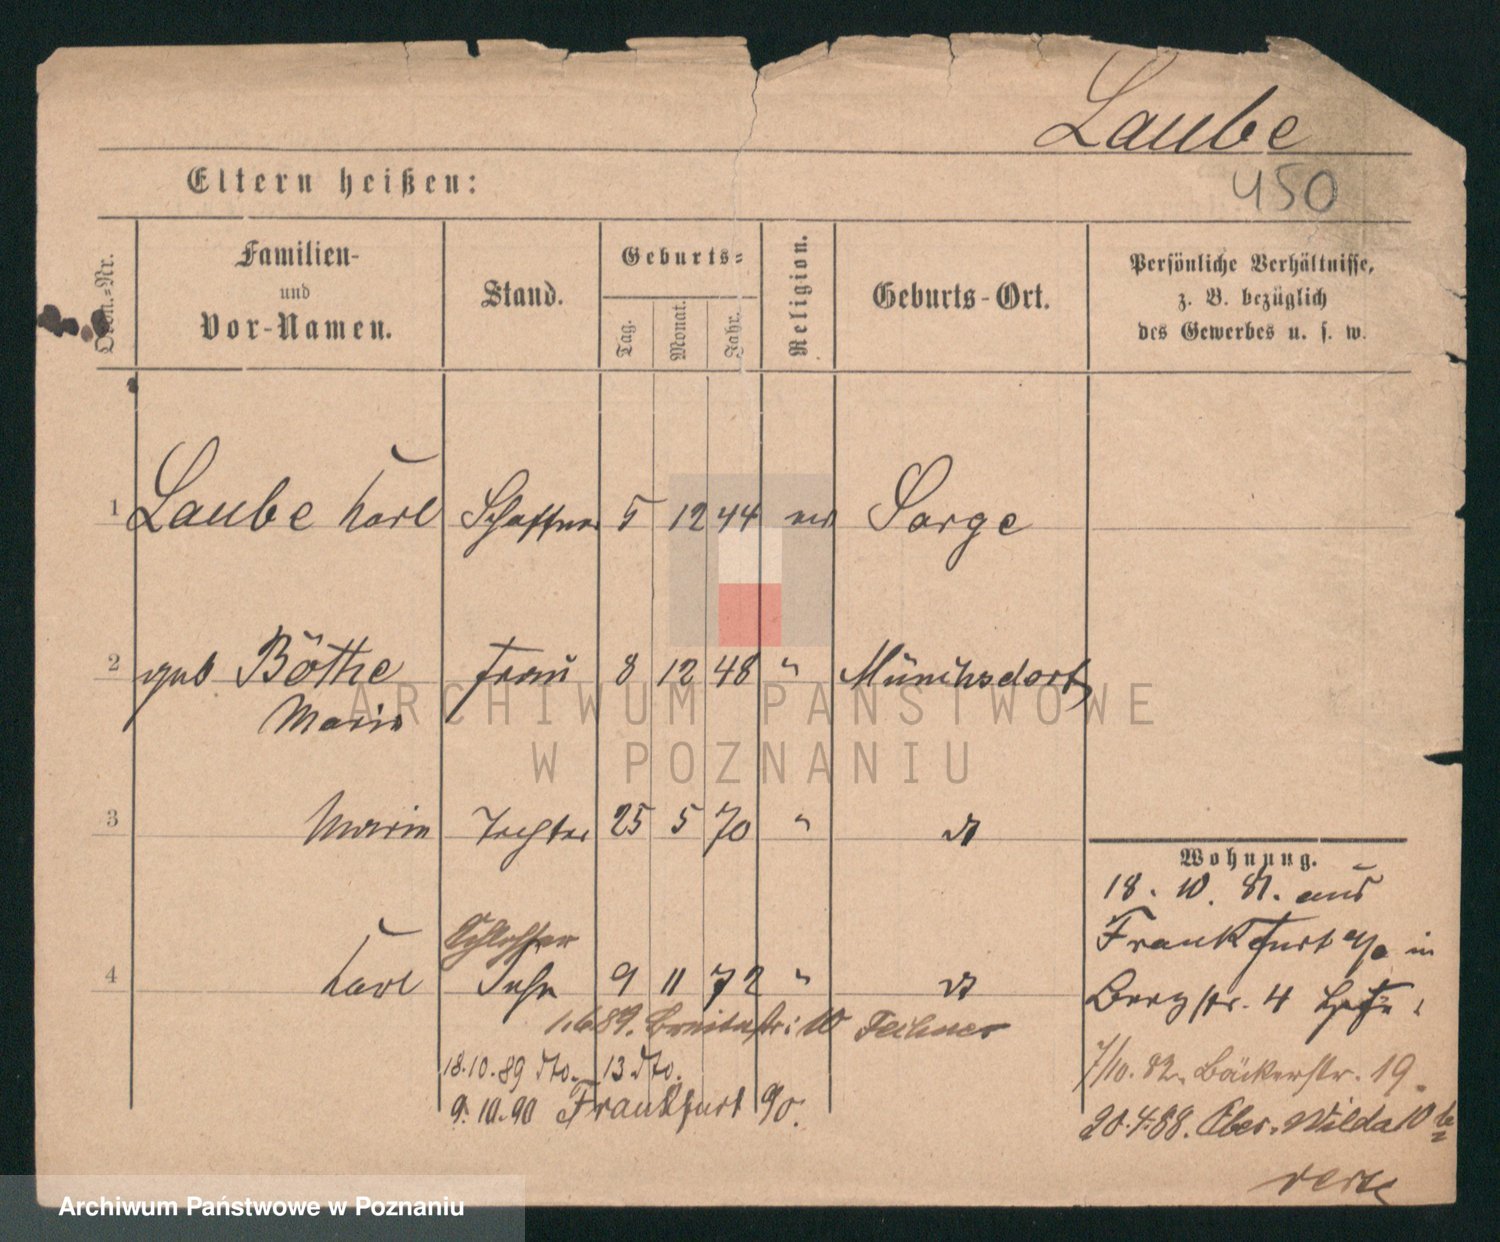 Laube
450
Eltern heißen:
Ordn.-Nr.
Familien-
und
Vor-Namen.
Stand.
Geburts-
Tag.
Monat.
Jahr.
Religion.
Geburts-Ort.
Persönliche Verhältnisse,
z. B. bezüglich
des Gewerbes u. s. w.
1 Laube Karl Schaffner 5 12 44 ev Sorge
2 geb Böthe Frau 8 12 48 " Münchsdorf
Marie
3 Marie Tochter 25 5 70 "
Wohnung.
18. 10. 81. aus
Frankfurt a/o in
Bergstr. 4
7/10. 82. Bäckerstr. 19.
20.4.88. Ober-Wilda 10
verz
Schlosser
4 Karl Sohn 9 11 72 "
1.6.89. Breitestr: 10 Fechner
18.10.89 dto. 13 dto.
9.10.90 Frankfurt
ARCHIWUM PAŃSTWOWE
W POZNANIU
Archiwum Państwowe w Poznaniu